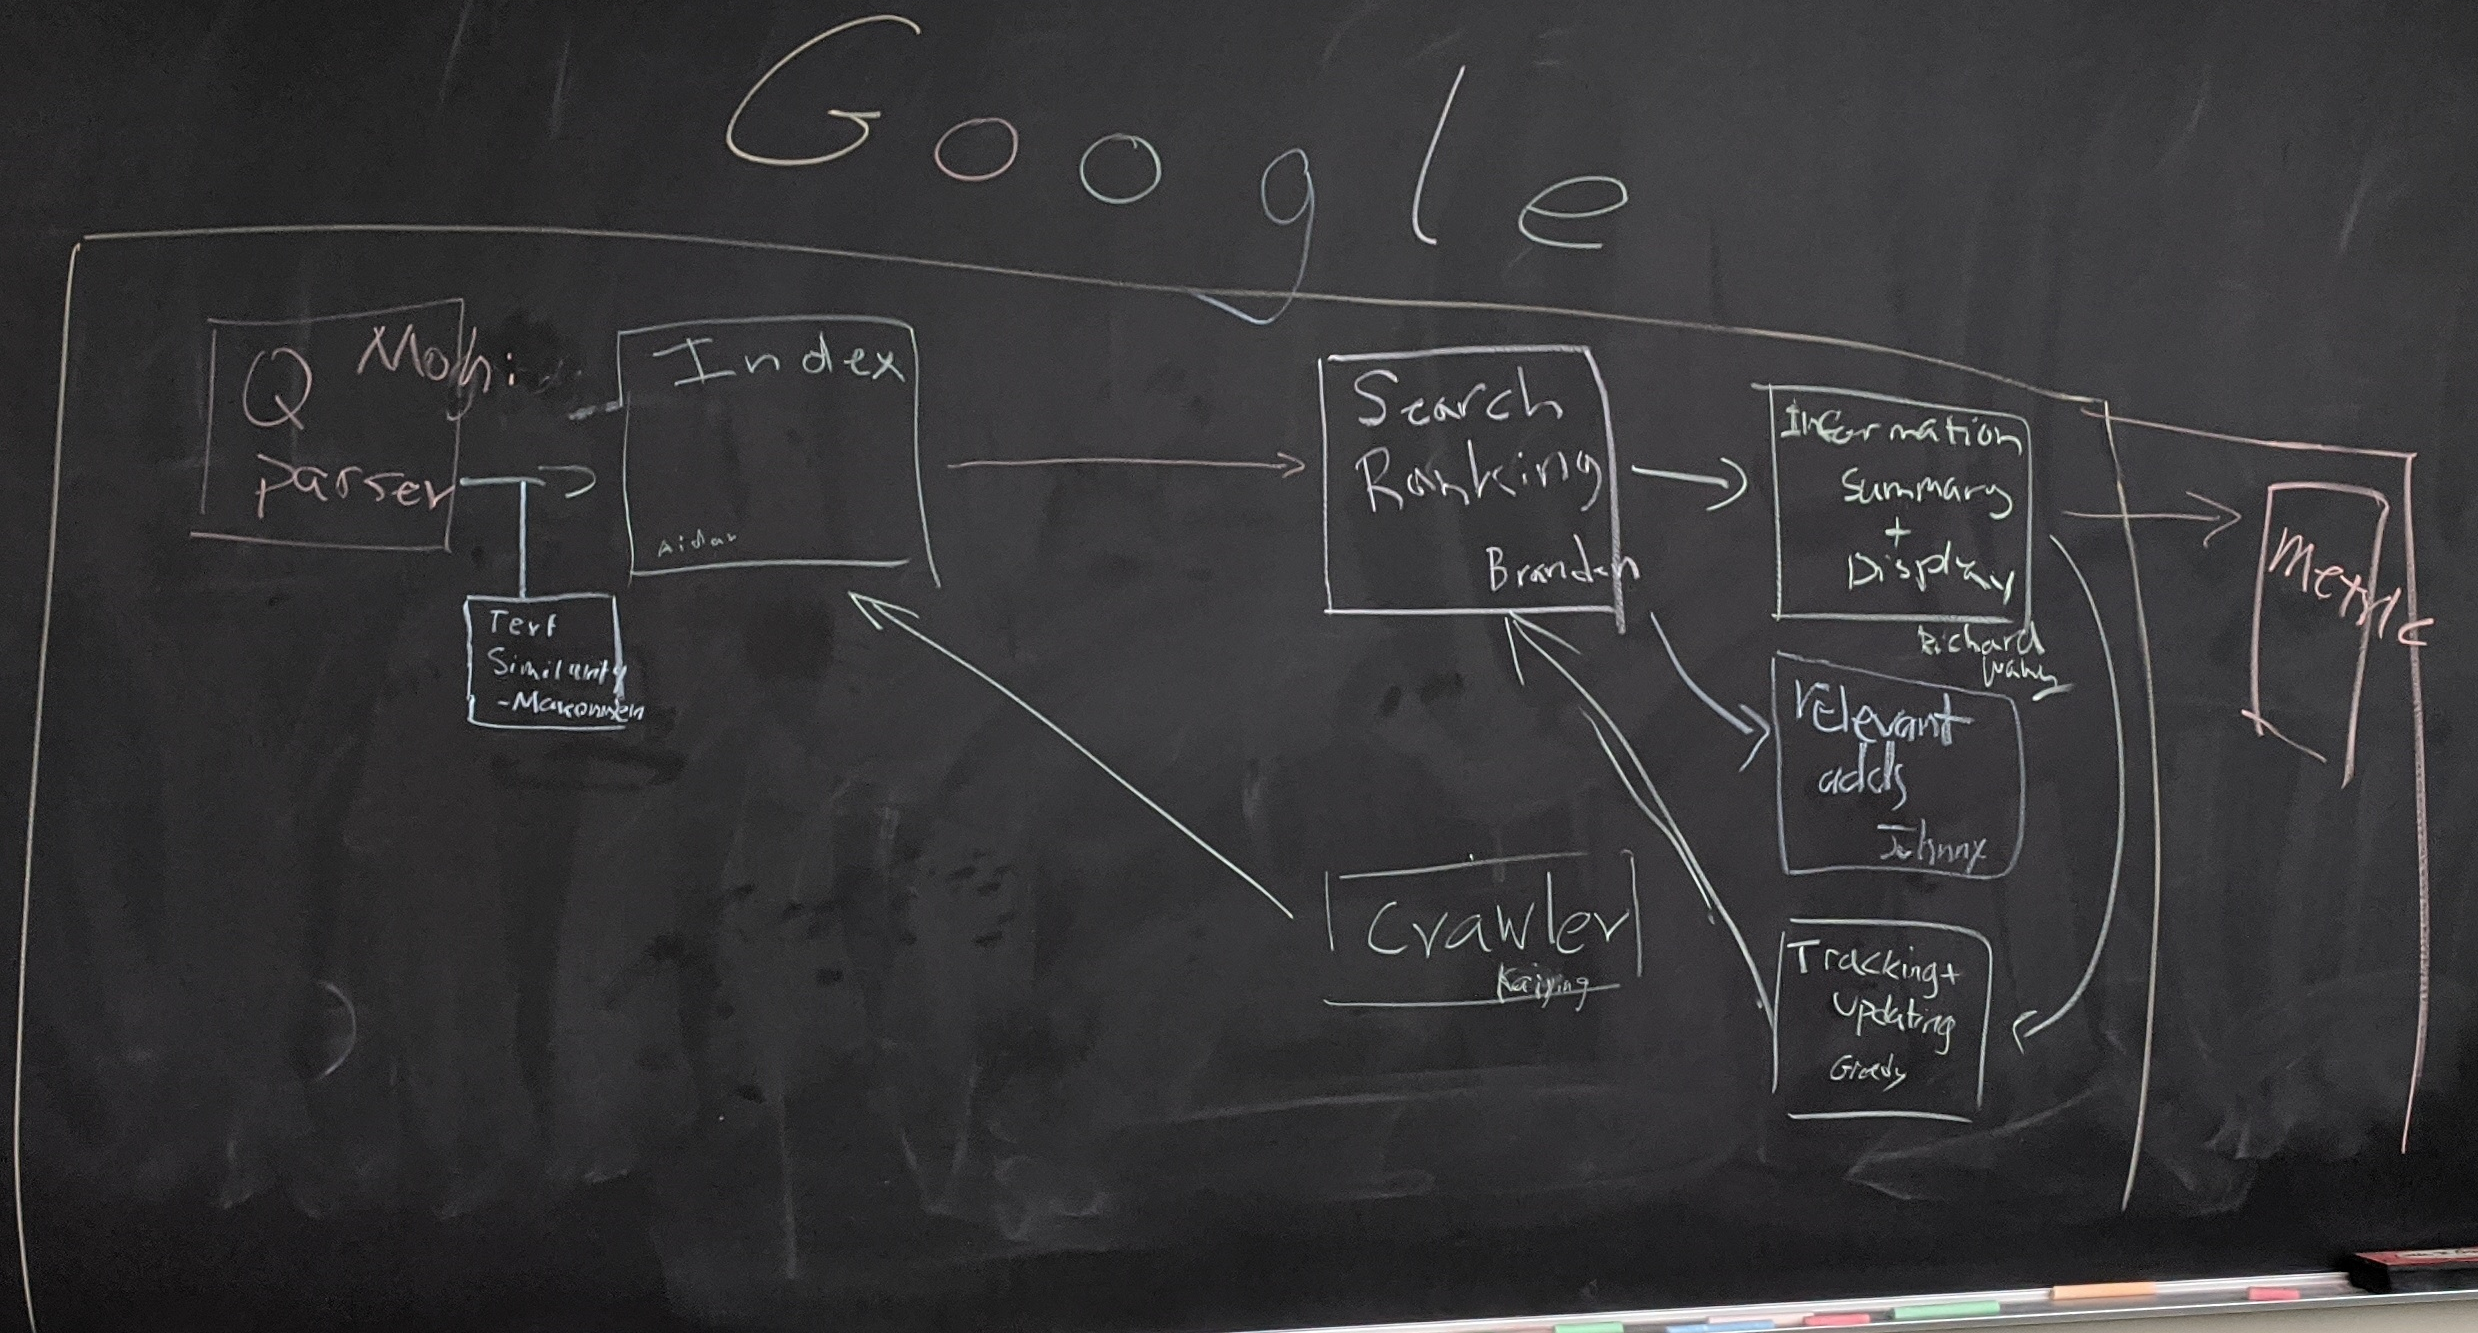 Google
Mohi
Q
Parser
Index
Aidar
Text
Similarity
-Makonnen
Search
Ranking
Branden
Information
Summary
+
Display
Richard
Wang
relevant
adds
Johnny
Crawler
Kaiying
Tracking+
Updating
Metric